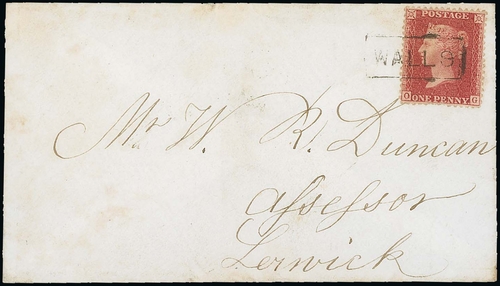 POSTAGE
WALLS
O ONE PENNY G
Mr W. R. Duncan
Assessor
Lerwick